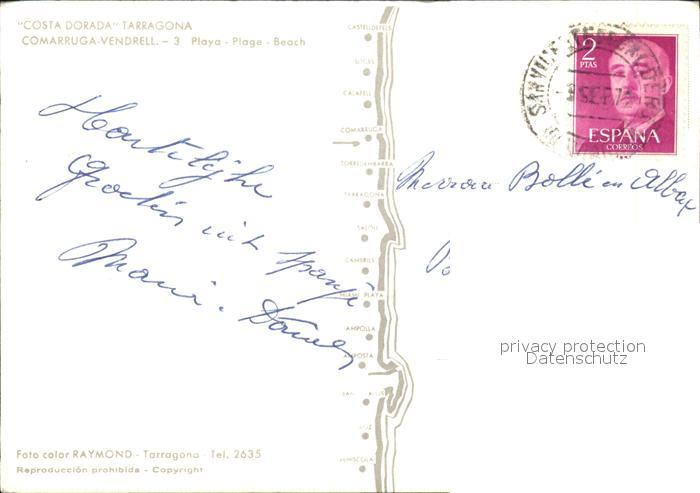 "COSTA DORADA" TARRAGONA
COMARRUGA-VENDRELL. - 3 Playa - Plage - Beach
Hartelijke
Groeten uit Spanje
Maria - 
CASTELLDEFELS
SITGES
CALAFELL
COMARRUGA
TORREDEMBARRA
TARRAGONA
SALOU
CAMBRILS
MIAMI PLAYA
AMPOLLA
AMPOSTA
SAN CARLOS
MIÑISCOLA
2
PTAS
ESPAÑA
CORREOS
SEP
Mevrouw Bollé en
privacy protection
Datenschutz
Foto color RAYMOND - Tarragona - Tel. 2635
Reproducción prohibida - Copyright